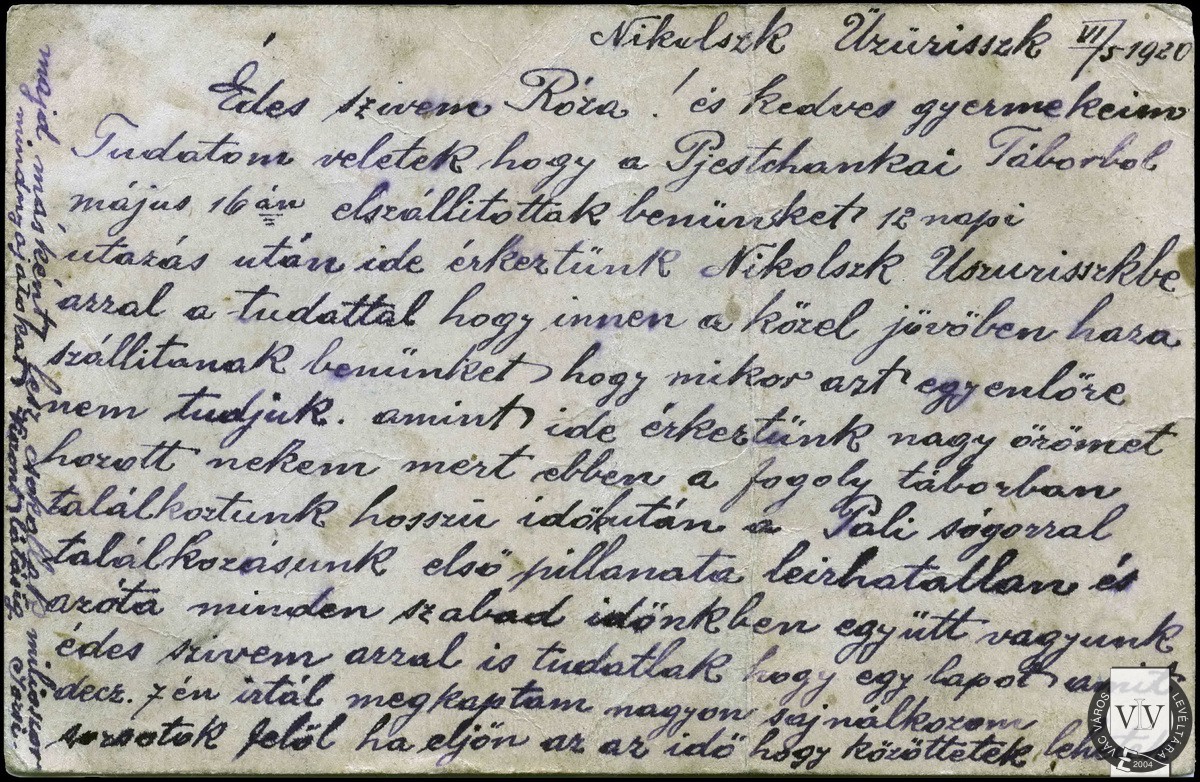 Nikolszk Üzürisszk VI/5 1920
Édes szivem Róza! és kedves gyermekeim
Tudatom veletek hogy a Pjestchankai Táborbol
május 16 án elszállitottak benünket 12 napi
utazás után ide érkeztünk Nikolszk Uszurisszkbe
azzal a tudattal hogy innen a közel jövöben haza
szállitanak benünket hogy mikor azt egyenlőre
nem tudjuk. amint ide érkeztünk nagy örömet
hozott nekem mert ebben a fogoly táborban
találkoztunk hosszú időkután a Pali sógorral
találkozásunk első pillanata leirhatatlan és
azóta minden szabad időnkben együtt vagyunk
édes szivem azzal is tudatlak hogy egy lapot amit
decz. 7 én irtál megkaptam nagyon sajnálkozom
sorsotok felől ha eljön az az idő hogy közöttetek lehetek
majd másként lesz csokollak milioszor
mindnyajatokat viszontlátásig Józsi.
VÁC VÁROS LEVÉLTÁRA
VLV
2004